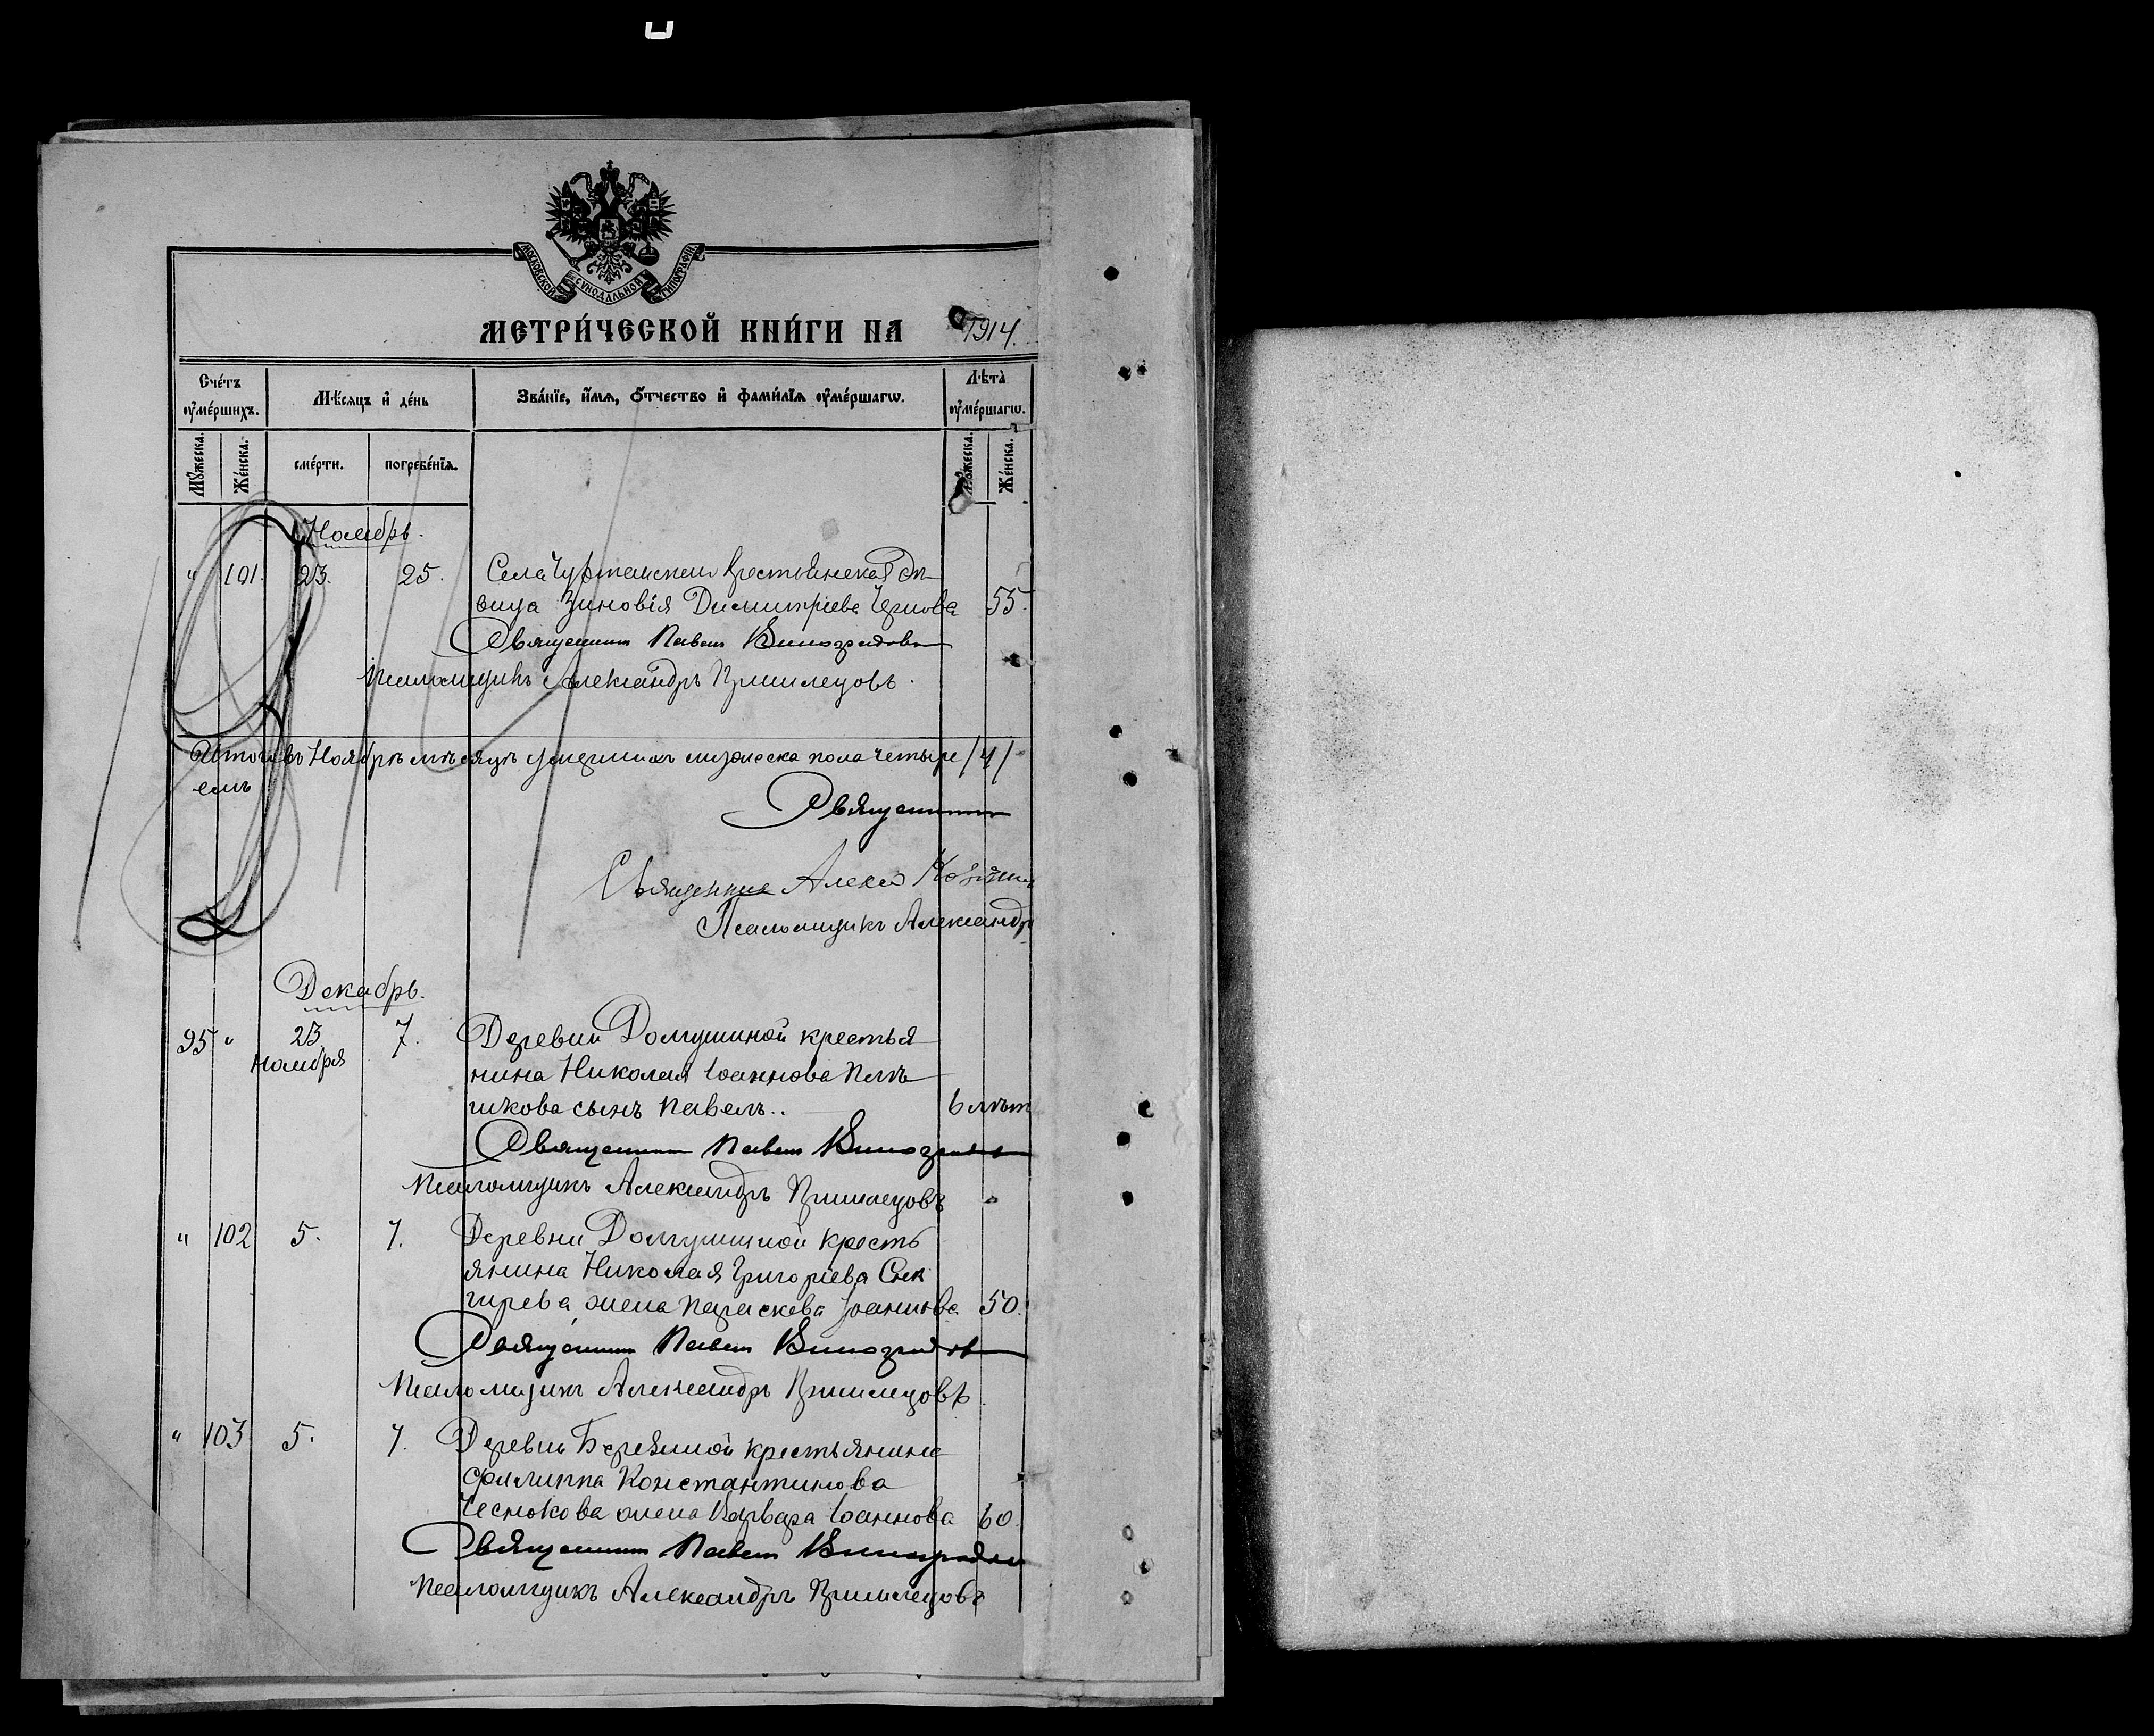 МОСКОВСКОЙ СУНОДАЛЬНОЙ ТИПОГРАФІИ
МЕТРИ́ЧЕСКОЙ КНИ́ГИ НА 1914.
Сче́тъ оу҆ме́ршихъ.
Мѣ́сяцъ и҆ де́нь
Зва́нїе, и҆́мѧ, ѻ҆́тчество и҆ фами́лїѧ оу҆ме́ршагѡ.
Лѣта̀ оу҆ме́ршагѡ.
Мꙋ́жеска.
Же́нска.
сме́рти.
погребе́нїѧ.
Мꙋ́жеска.
Же́нска.
Ноябрь.
" 101. 23. 25. Села крестьянская вдо
вица Зиновія Димитріева Чернова 55.
Священникъ Павелъ Виноградовъ
Псаломщикъ Александръ
Итого въ Ноябрѣ мѣсяцѣ умершихъ мужеска пола четыре /4/
Священникъ
Священник Алексей
Псаломщикъ Александръ
Декабрь.
95 " 23. Ноября 7. Деревни Долгушиной крестья
нина Николая Іоаннова
сынъ Павелъ.. 6 лѣтъ
Священникъ Павелъ Виноградовъ
Псаломщикъ Александръ
" 102 5. 7. Деревни Долгушиной кресть
янина Николая Григоріева Сне
гирева жена Параскева Іоаннова 50.
Священникъ Павелъ Виноградовъ
Псаломщикъ Александръ
" 103 5. 7. Деревни крестьянина
Филиппа Константинова
Чеснокова жена Варвара Іоаннова 60.
Священникъ Павелъ Виноградовъ
Псаломщикъ Александръ